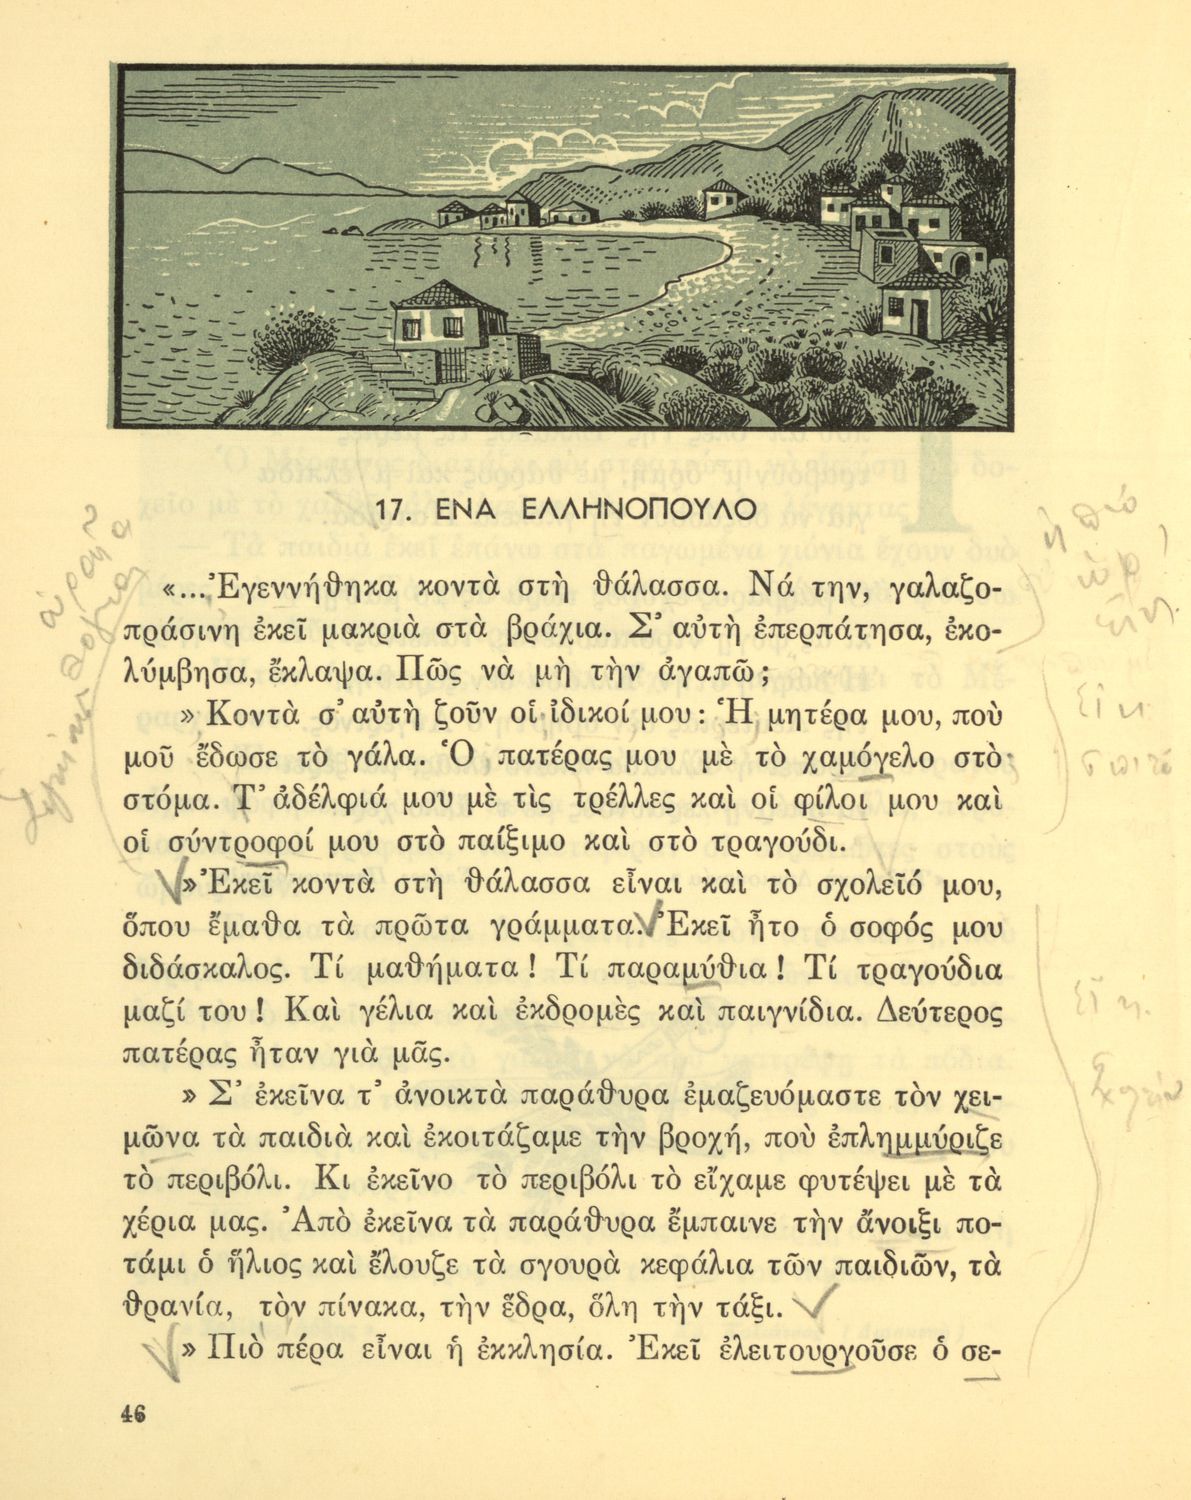 17. ΕΝΑ ΕΛΛΗΝΟΠΟΥΛΟ
«...Ἐγεννήθηκα κοντὰ στὴ θάλασσα. Νά την, γαλαζο-
πράσινη ἐκεῖ μακριὰ στὰ βράχια. Σ' αὐτὴ ἐπερπάτησα, ἐκο-
λύμβησα, ἔκλαψα. Πῶς νὰ μὴ τὴν ἀγαπῶ;
» Κοντὰ σ' αὐτὴ ζοῦν οἱ ἰδικοί μου: Ἡ μητέρα μου, ποὺ
μοῦ ἔδωσε τὸ γάλα. Ὁ πατέρας μου μὲ τὸ χαμόγελο στὸ
στόμα. Τ' ἀδέλφιά μου μὲ τὶς τρέλλες καὶ οἱ φίλοι μου καὶ
οἱ σύντροφοί μου στὸ παίξιμο καὶ στὸ τραγούδι.
» Ἐκεῖ κοντὰ στὴ θάλασσα εἶναι καὶ τὸ σχολεῖό μου,
ὅπου ἔμαθα τὰ πρῶτα γράμματα. Ἐκεῖ ἦτο ὁ σοφός μου
διδάσκαλος. Τί μαθήματα! Τί παραμύθια! Τί τραγούδια
μαζί του! Καὶ γέλια καὶ ἐκδρομὲς καὶ παιγνίδια. Δεύτερος
πατέρας ἦταν γιὰ μᾶς.
» Σ' ἐκεῖνα τ' ἀνοικτὰ παράθυρα ἐμαζευόμαστε τὸν χει-
μῶνα τὰ παιδιὰ καὶ ἐκοιτάζαμε τὴν βροχή, ποὺ ἐπλημμύριζε
τὸ περιβόλι. Κι ἐκεῖνο τὸ περιβόλι τὸ εἴχαμε φυτέψει μὲ τὰ
χέρια μας. Ἀπὸ ἐκεῖνα τὰ παράθυρα ἔμπαινε τὴν ἄνοιξι πο-
τάμι ὁ ἥλιος καὶ ἔλουζε τὰ σγουρὰ κεφάλια τῶν παιδιῶν, τὰ
θρανία, τὸν πίνακα, τὴν ἕδρα, ὅλη τὴν τάξι.
» Πιὸ πέρα εἶναι ἡ ἐκκλησία. Ἐκεῖ ἐλειτουργοῦσε ὁ σε-
46